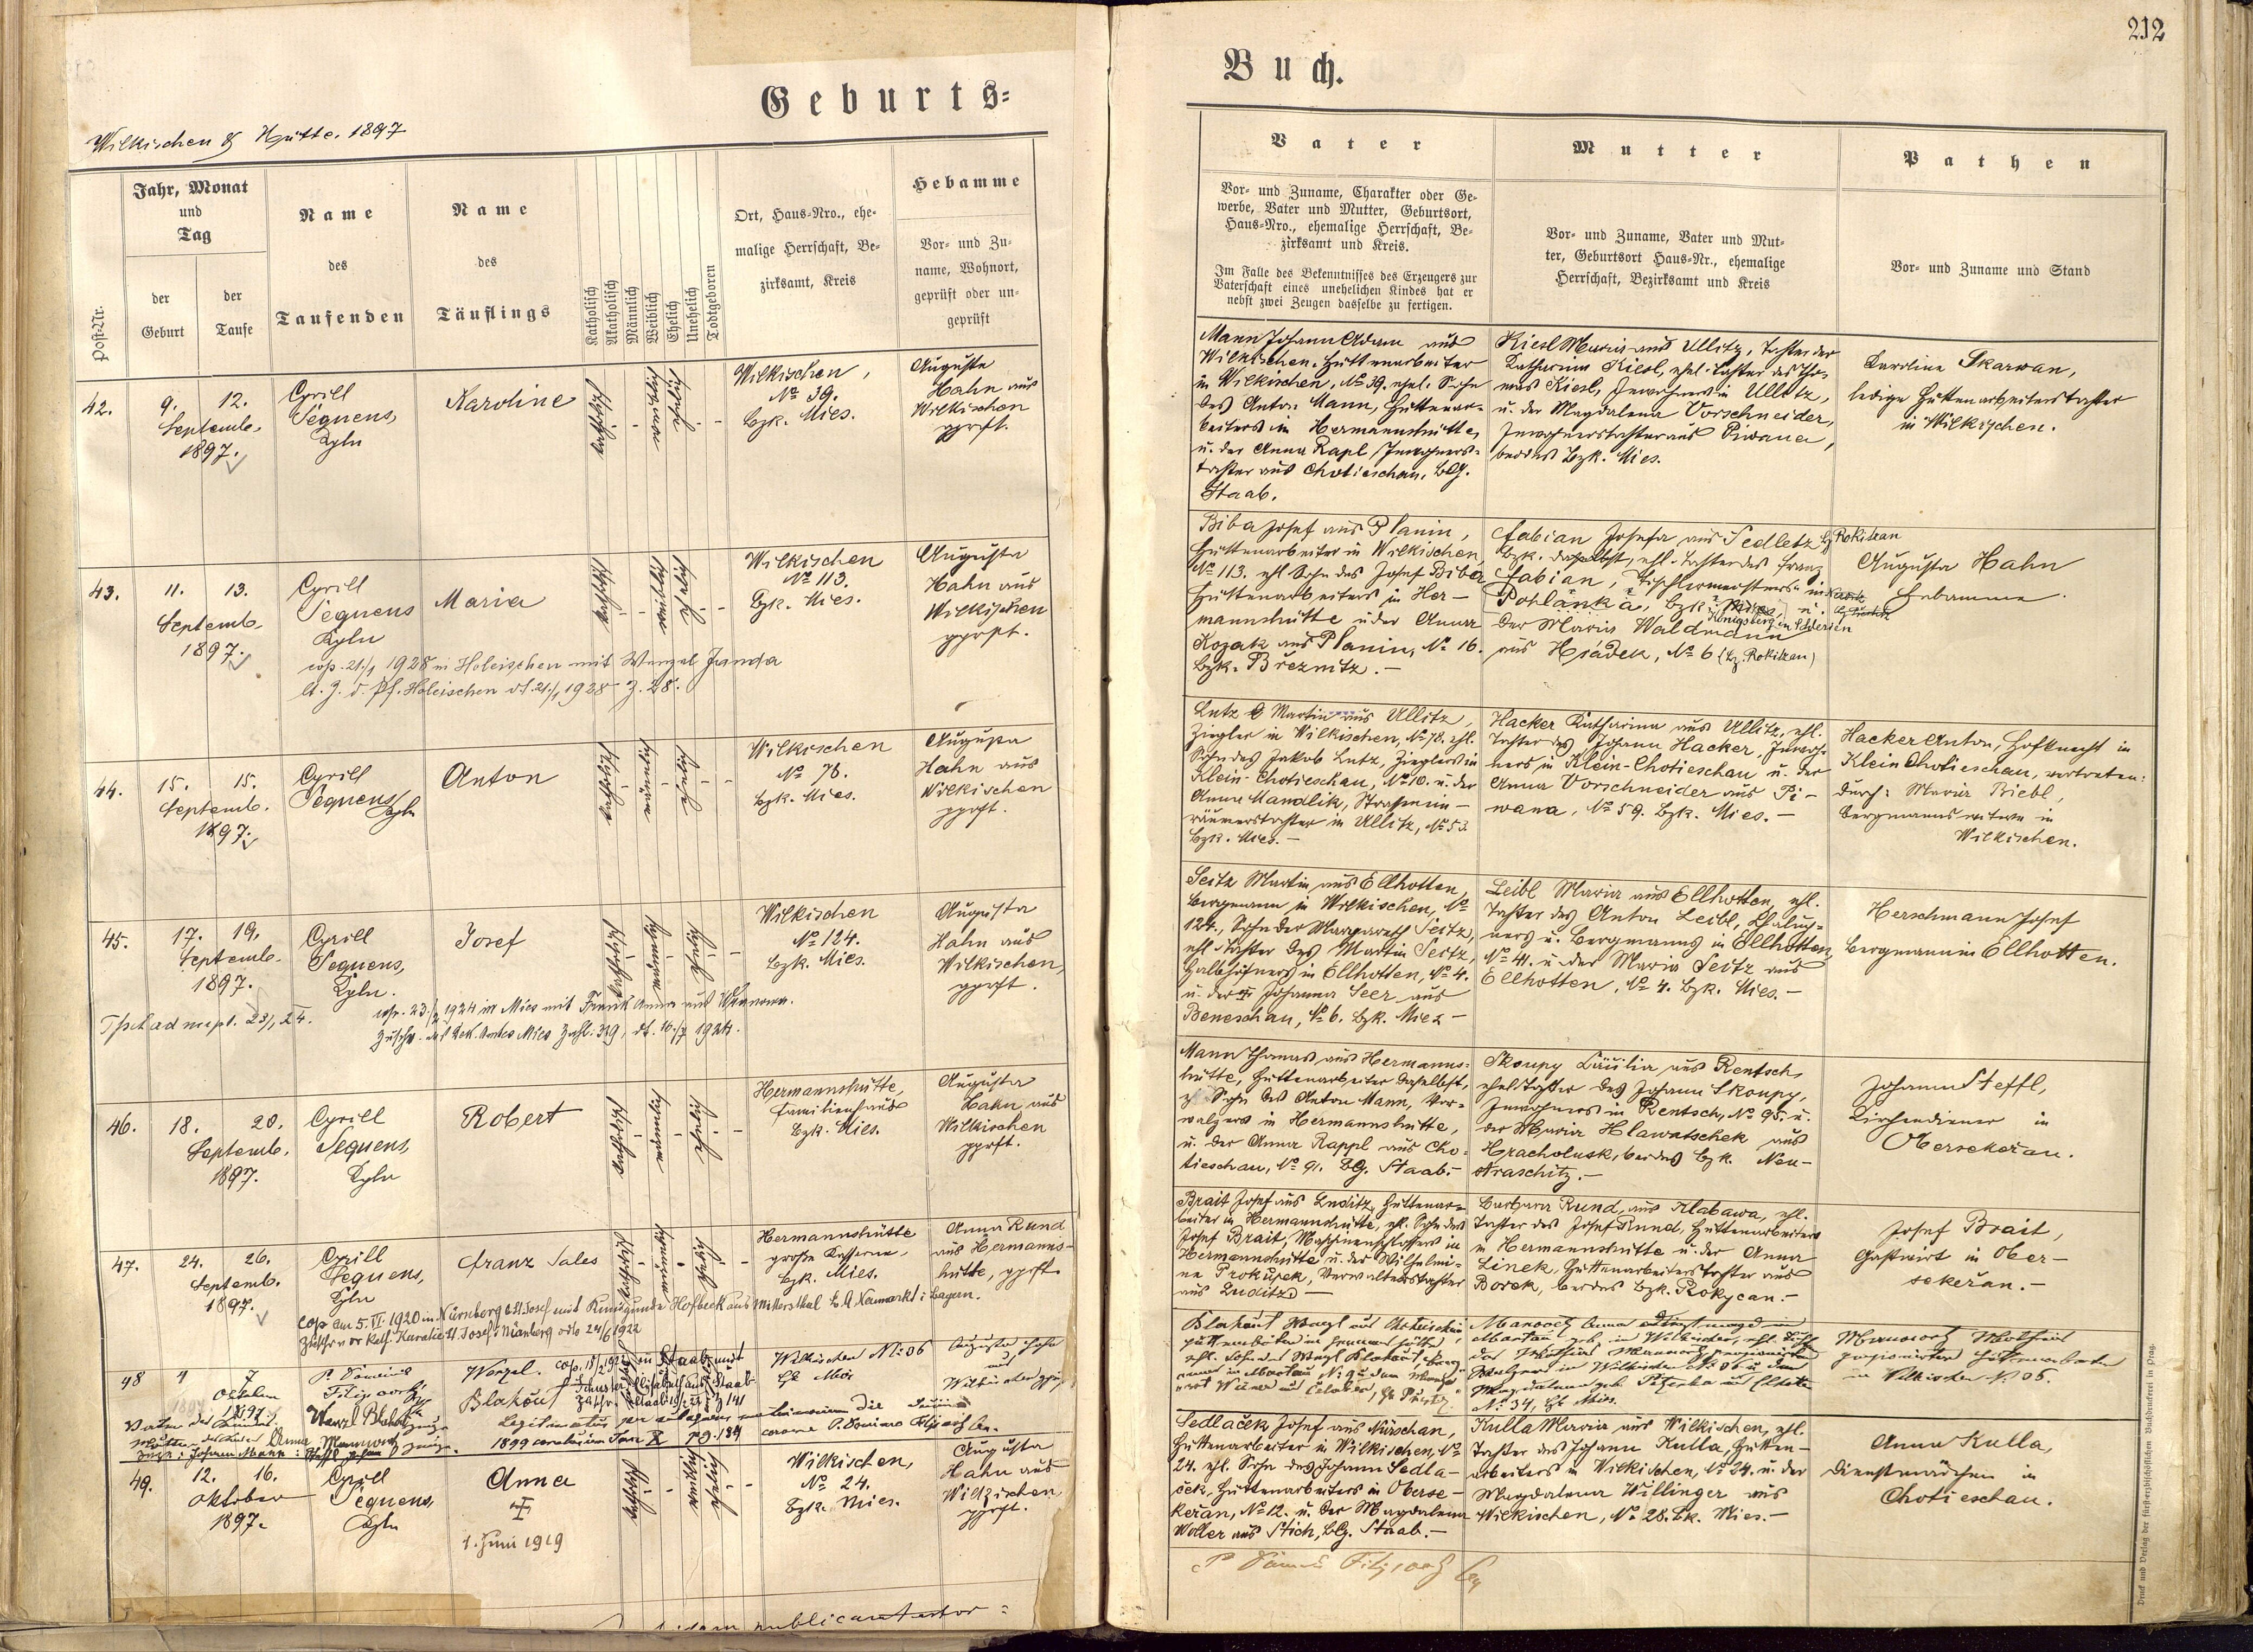 212
Geburts-
Buch.
Wilkischen & Hütte. 1897
Post-Nr.
Jahr, Monat
und
Tag
der
Geburt
der
Taufe
Name
des
Taufenden
Name
des
Täuflings
Katholisch
Akatholisch
Männlich
Weiblich
Ehelich
Unehelich
Todtgeboren
Ort, Haus-Nro., ehe-
malige Herrschaft, Be-
zirksamt, Kreis
Hebamme
Vor- und Zu-
name, Wohnort,
geprüft oder un-
geprüft
Vater
Vor- und Zuname, Charakter oder Ge-
werbe, Vater und Mutter, Geburtsort,
Haus-Nro., ehemalige Herrschaft, Be-
zirksamt und Kreis.
Im Falle des Bekenntnisses des Erzeugers zur
Vaterschaft eines unehelichen Kindes hat er
nebst zwei Zeugen dasselbe zu fertigen.
Mutter
Vor- und Zuname, Vater und Mut-
ter, Geburtsort Haus-Nr., ehemalige
Herrschaft, Bezirksamt und Kreis
Pathen
Vor- und Zuname und Stand
42.
9. 12.
Septemb.
1897.
Cyrill
Sequens,
Kpln
Karoline
katholisch
weiblich
ehelich
Wilkischen,
No 39.
Bzk. Mies.
Auguste
Hahn aus
Wilkischen
gprft.
Mann Johann Adam aus
Wilkischen, Hüttenarbeiter
in Wilkischen, No 39. ehel. Sohn
des Anton Mann, Hüttenar-
beiters in Hermannshütte,
u. der Anna Rapl, Inwohners-
tochter aus Chotieschau, BG.
Staab.
Kiesl Maria aus Ullitz, Tochter der
Katharina Kiesl, ehel. Tochter des Tho-
mas Kiesl, Inwohners in Ullitz,
u. der Magdalena Vorschneider,
Inwohnerstochter aus Piwana,
beides Bzk. Mies.
Karoline Skarwan,
ledige Hüttenarbeiterstochter
in Wilkischen.
43.
11. 13.
Septemb.
1897.
Cyrill
Sequens
Kpln
Maria
katholisch
weiblich
ehelich
Wilkischen
No 113.
Bzk. Mies.
Augusta
Hahn aus
Wilkischen
gprft.
cop. 21./1 1928 in Holeischen mit Wenzel Janda
lt. Z. d. Pf. Holeischen dt. 21./1 1928 Z. 28.
Biba Josef aus Planin,
Hüttenarbeiter in Wilkischen,
No 113. ehl. Sohn des Josef Biba
Hüttenarbeiters in Her-
mannshütte u. der Anna
Kozak aus Planin, No 16.
Bzk. Březnitz.-
Fabian Josefa aus Sedletz Bz Rokitzan
Bzk. daselbst, ehl. Tochter des Franz
Fabian, Tischlermeisters in
Pohlanka, Bzk. u.
Königsberg in Schlesien
der Maria Waldmann
aus Hradek, No 6 (Bz. Rokitzan)
Augusta Hahn
Hebamme.
44.
15. 15.
Septemb.
1897.
Cyrill
Sequens
Kpln
Anton
katholisch
männlich
ehelich
Wilkischen
No 78.
Bzk. Mies.
Augusta
Hahn aus
Wilkischen
gprft.
Lutz Martin aus Ullitz,
Ziegler in Wilkischen, No 78. ehl.
Sohn des Jakob Lutz, Zieglers in
Klein-Chotieschau, No 10. u. der
Anna Mandlik, Strassenein-
räumerstochter in Ullitz, No 53.
Bzk. Mies.-
Hacker Katharina aus Ullitz, ehl.
Tochter des Johann Hacker, Inwoh-
ners in Klein-Chotieschau u. der
Anna Vorschneider aus Pi-
wana, No 59. Bzk. Mies.-
Hacker Anton, Hofknecht in
Klein Chotieschau, vertreten:
durch: Maria Riebl,
Bergmannswitwe in
Wilkischen.
45.
17. 19.
Septemb.
1897.
Cyrill
Sequens,
Kpln.
Josef
katholisch
männlich
ehelich
Wilkischen
No 124.
Bzk. Mies.
Augusta
Hahn aus
Wilkischen,
gprft.
cop. 23./2 1924 in Mies mit Anna aus
Zuschr. des Dek. Amtes Mies Zahl: 319, dt. 10./7 1924.
Seitz Martin aus Ellhotten,
Bergmann in Wilkischen, No
124., Sohn der Margareth Seitz,
ehl. Tochter des Martin Seitz,
Halbhöfners in Ellhotten, No 4.
u. der Johanna Seer aus
Beneschau, No 6. Bzk. Mies-
Leibl Maria aus Ellhotten, ehl.
Tochter des Anton Leibl, Chalup-
ners u. Bergmanns in Ellhotten
No 41. u. der Maria Seitz aus
Ellhotten, No 4. Bzk. Mies.-
Herschmann Josef
Bergmann in Ellhotten.
46.
18. 20.
Septemb.
1897.
Cyrill
Sequens,
Kpln
Robert
katholisch
männlich
ehelich
Hermannshütte,
Familienhaus
Bzk. Mies.
Augusta
Hahn aus
Wilkischen
gprft.
Mann Thomas aus Hermanns-
hütte, Hüttenarbeiter daselbst,
Sohn des Anton Mann, Vor-
walzers in Hermannshütte,
u. der Anna Rappl aus Cho-
tieschau, No 91. BG. Staab.-
Skoupy Cäcilia aus Rentsch,
ehel. Tochter des Johann Skoupy,
Inwohners in Rentsch, No 95. u.
der Maria Hlawatschek aus
Hracholusk, beides Bzk. Neu-
straschitz.-
Johann Steffl,
Kirchendiener in
Obersekeřan.
47.
24. 26.
Septemb.
1897.
Cyrill
Sequens,
Kpln
Franz Sales
katholisch
männlich
ehelich
Hermannshütte
große Kaserne,
Bzk. Mies.
Anna Rund
aus Hermanns-
hütte, gprft.
cop am 5. VI. 1920 in Nürnberg St. Josef mit Kunigunde Hofbeck aus Mittersthal B. A Neumarkt i. Bayern.
Zuschr. v der Kath. Kuratie St. Josef, Nürnberg vdto 24/6 1922
Brait Josef aus Luditz, Hüttenar-
beiter in Hermannshütte, ehl. Sohn des
Josef Brait, Maschinenschlossers in
Hermannshütte u. der Wilhelmi-
ne Prokupek, Verwalterstochter
aus Luditz-
Barbara Rund, aus Klabawa, ehl.
Tochter des Josef Rund, Hüttenarbeiters
in Hermannshütte u. der Anna
Linek, Hüttenarbeiterstochter aus
Borek, beides Bzk. Rokycan.-
Josef Brait,
Gastwirt in Ober-
sekeřan.-
48
7
Oktober
1897
P. Dominik
Wenzel.
Blahout
Wilkischen No 06
Bz Mies
Legitimatus per subsequens matrimonium
Wenzl Blahout
Anna
1899
No 34, Bz Mies.
in Wilkischen No 06.
49.
12. 16.
Oktober
1897.
Cyrill
Sequens,
Kpln
Anna
1. Juni 1919
katholisch
weiblich
ehelich
Wilkischen,
No 24.
Bzk. Mies.
Augusta
Hahn aus
Wilkischen,
gprft.
Sedlaček Josef aus Nürschan,
Hüttenarbeiter in Wilkischen, No
24. ehl. Sohn des Johann Sedla-
ček, Hüttenarbeiters in Oberse-
keřan, No 12. u. der Magdalena
Woller aus Stich, BG. Staab.-
Kulla Maria aus Wilkischen, ehl.
Tochter des Johann Kulla, Hütten-
arbeiters in Wilkischen, No 24. u. der
Magdalena Willinger aus
Wilkischen, No 28. Bk. Mies.-
Anna Kulla,
Dienstmädchen in
Chotieschau.
Druck und Verlag der fürsterzbischöflichen Buchdruckerei in Prag.